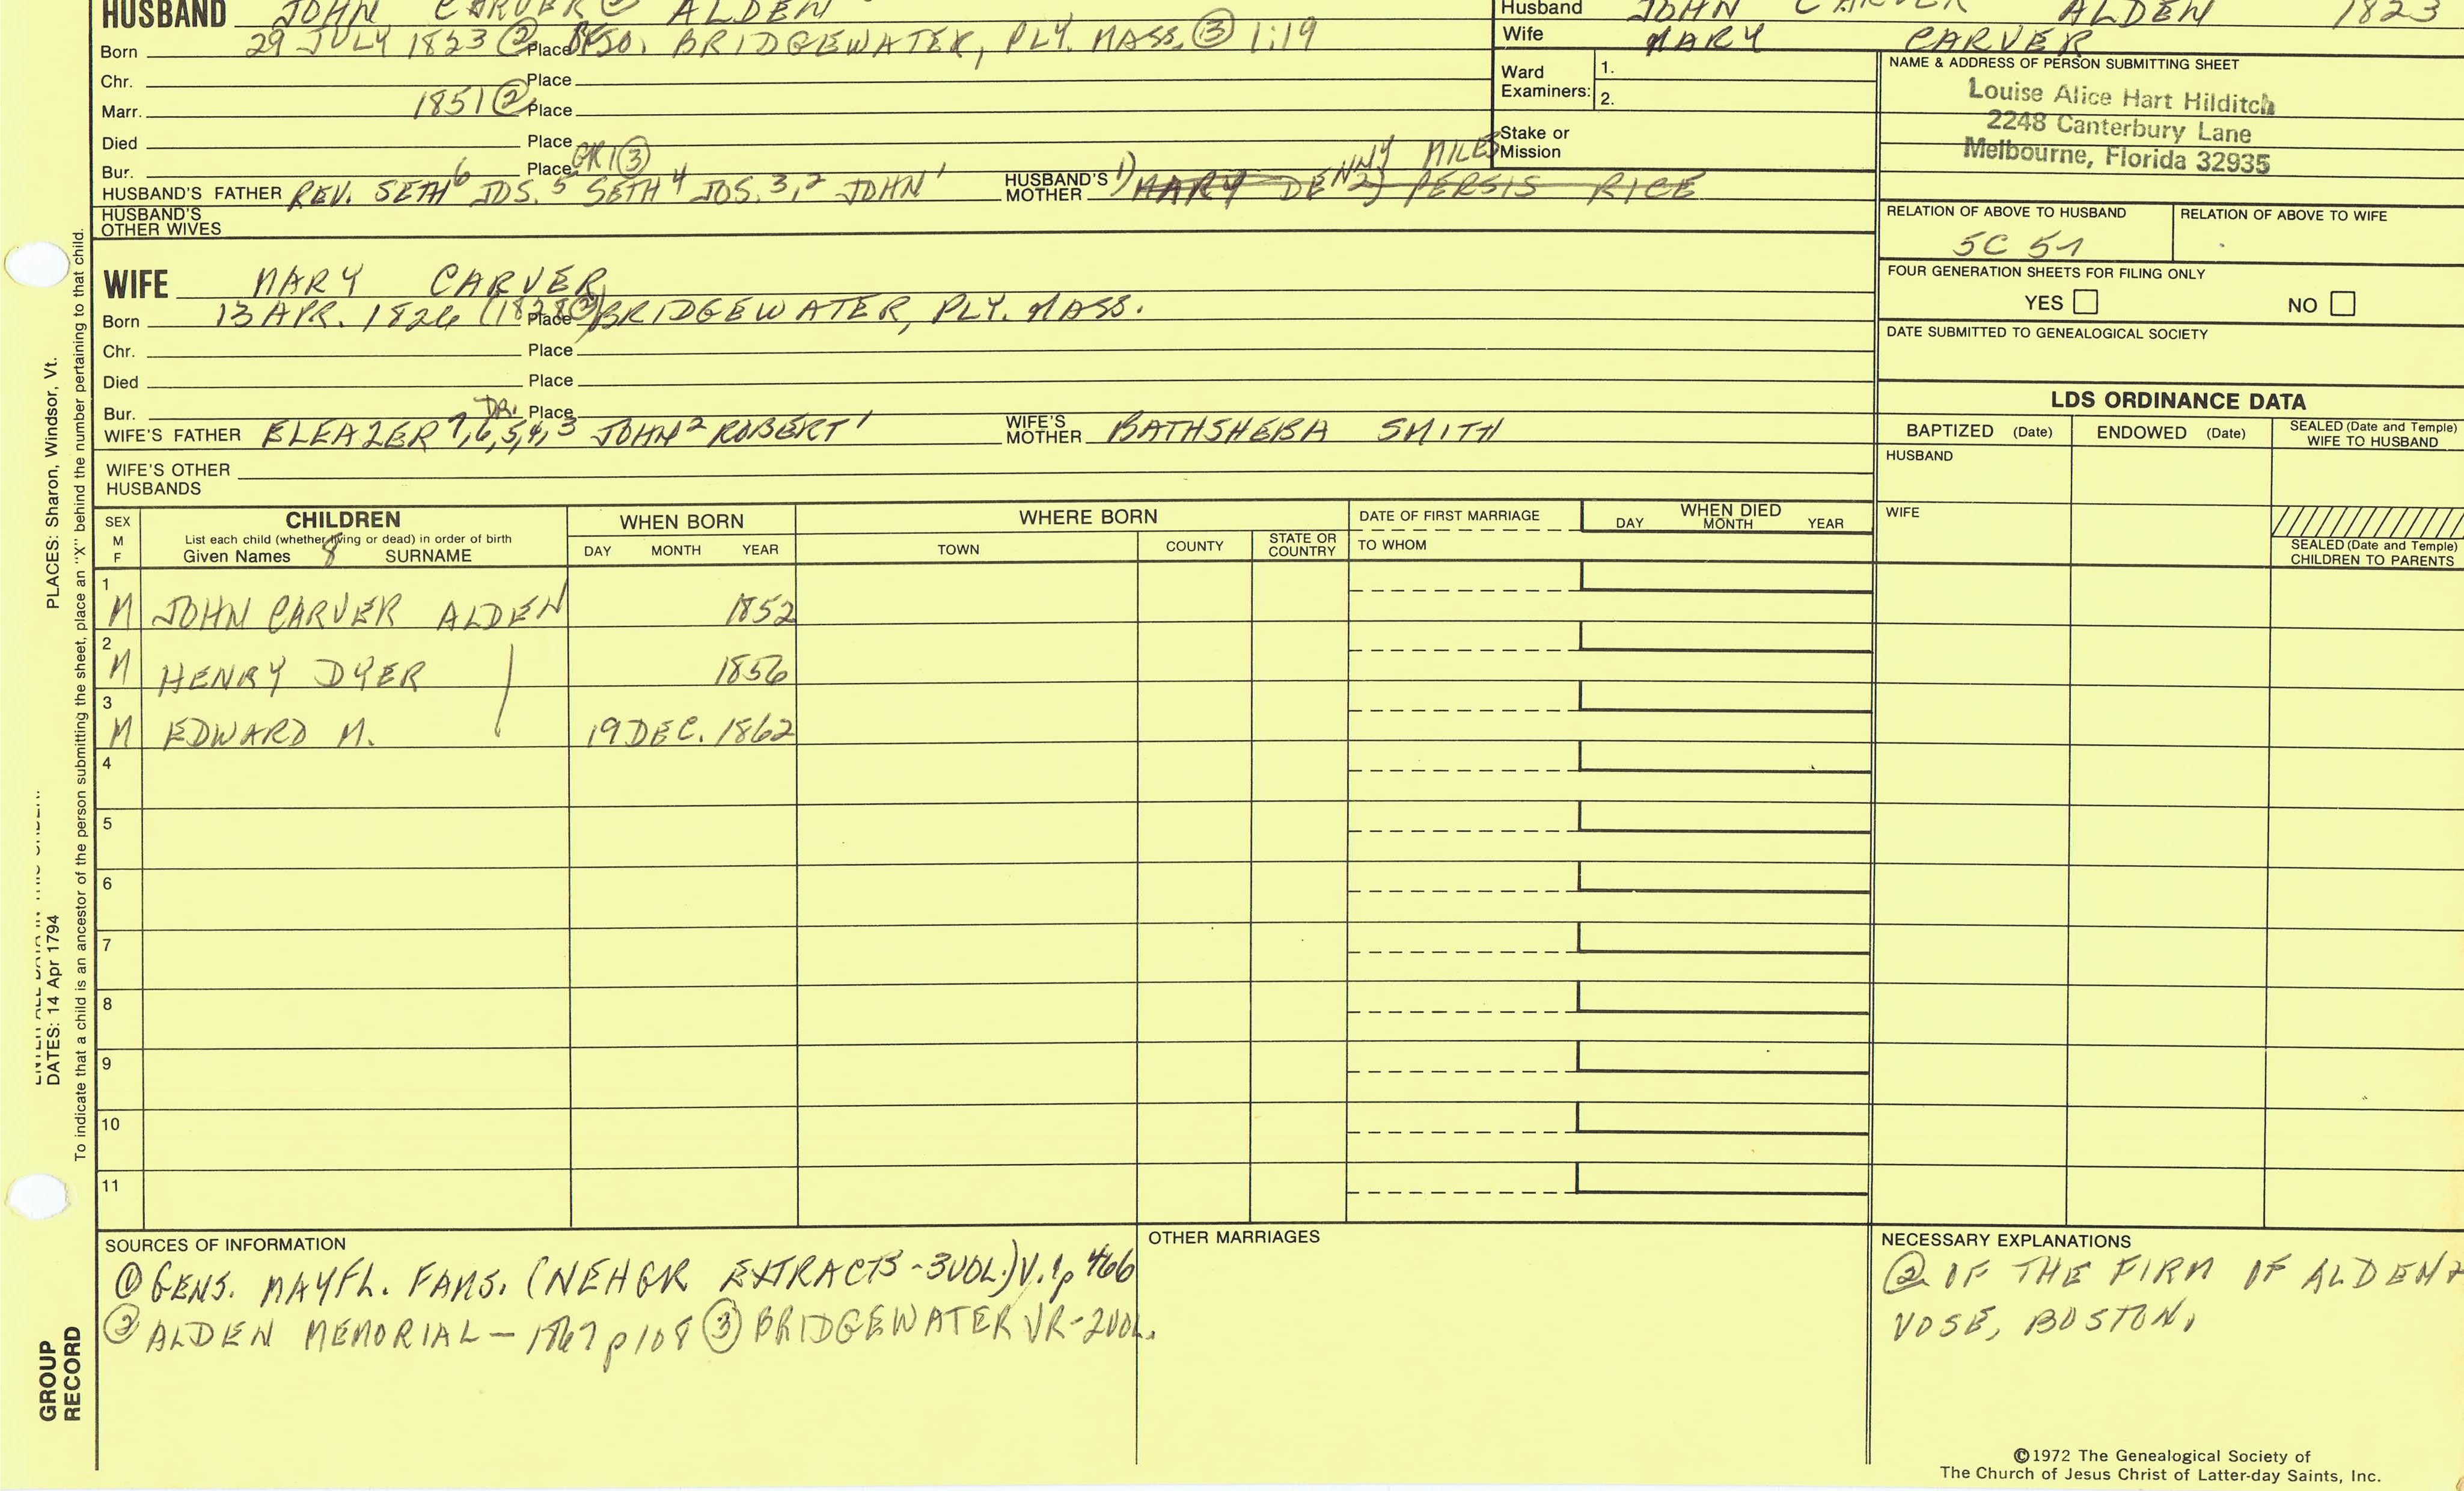 HUSBAND JOHN CARVER ALDEN
Born 29 JULY 1823 ② Place SO. BRIDGEWATER, PLY. MASS. ③ 1:19
Chr. Place
Marr. 1851 ② Place
Died Place
Bur. Place GR1 ③
HUSBAND'S FATHER REV. SETH 6 JOS. 5 SETH 4 JOS. 3,2 JOHN 1 HUSBAND'S MOTHER 1) MARY DENNY MILES 2) PERSIS RICE
HUSBAND'S OTHER WIVES
Husband JOHN CARVER ALDEN 1823
Wife MARY CARVER
Ward Examiners: 1.
2.
Stake or Mission
NAME & ADDRESS OF PERSON SUBMITTING SHEET
Louise Alice Hart Hilditch
2248 Canterbury Lane
Melbourne, Florida 32935
RELATION OF ABOVE TO HUSBAND RELATION OF ABOVE TO WIFE
5C
FOUR GENERATION SHEETS FOR FILING ONLY
YES NO
DATE SUBMITTED TO GENEALOGICAL SOCIETY
WIFE MARY CARVER
Born 13 APR. 1826 (1828 ②) Place BRIDGEWATER, PLY. MASS.
Chr. Place
Died Place
Bur. Place
WIFE'S FATHER ELEAZER 7,6, DR. 5,4,3 JOHN 2 ROBERT 1 WIFE'S MOTHER BATHSHEBA SMITH
WIFE'S OTHER HUSBANDS
LDS ORDINANCE DATA
BAPTIZED (Date) ENDOWED (Date) SEALED (Date and Temple) WIFE TO HUSBAND
HUSBAND
WIFE
SEALED (Date and Temple) CHILDREN TO PARENTS
SEX M F CHILDREN WHEN BORN WHERE BORN DATE OF FIRST MARRIAGE WHEN DIED
List each child (whether living or dead) in order of birth
Given Names 8 SURNAME DAY MONTH YEAR TOWN COUNTY STATE OR COUNTRY TO WHOM DAY MONTH YEAR
1 M JOHN CARVER ALDEN 1852
2 M HENRY DYER 1856
3 M EDWARD M. 19 DEC. 1862
4
5
6
7
8
9
10
11
SOURCES OF INFORMATION
① GENS. MAYFL. FAMS. (NEHGR EXTRACTS-3VOL.) V.1p 466
② ALDEN MEMORIAL - 1867 p108 ③ BRIDGEWATER VR-2VOL.
OTHER MARRIAGES
NECESSARY EXPLANATIONS
② OF THE FIRM OF ALDEN &
VOSE, BOSTON.
©1972 The Genealogical Society of
The Church of Jesus Christ of Latter-day Saints, Inc.
DATES: 14 Apr 1794 PLACES: Sharon, Windsor, Vt.
To indicate that a child is an ancestor of the person submitting the sheet, place an "X" behind the number pertaining to that child.
GROUP
RECORD